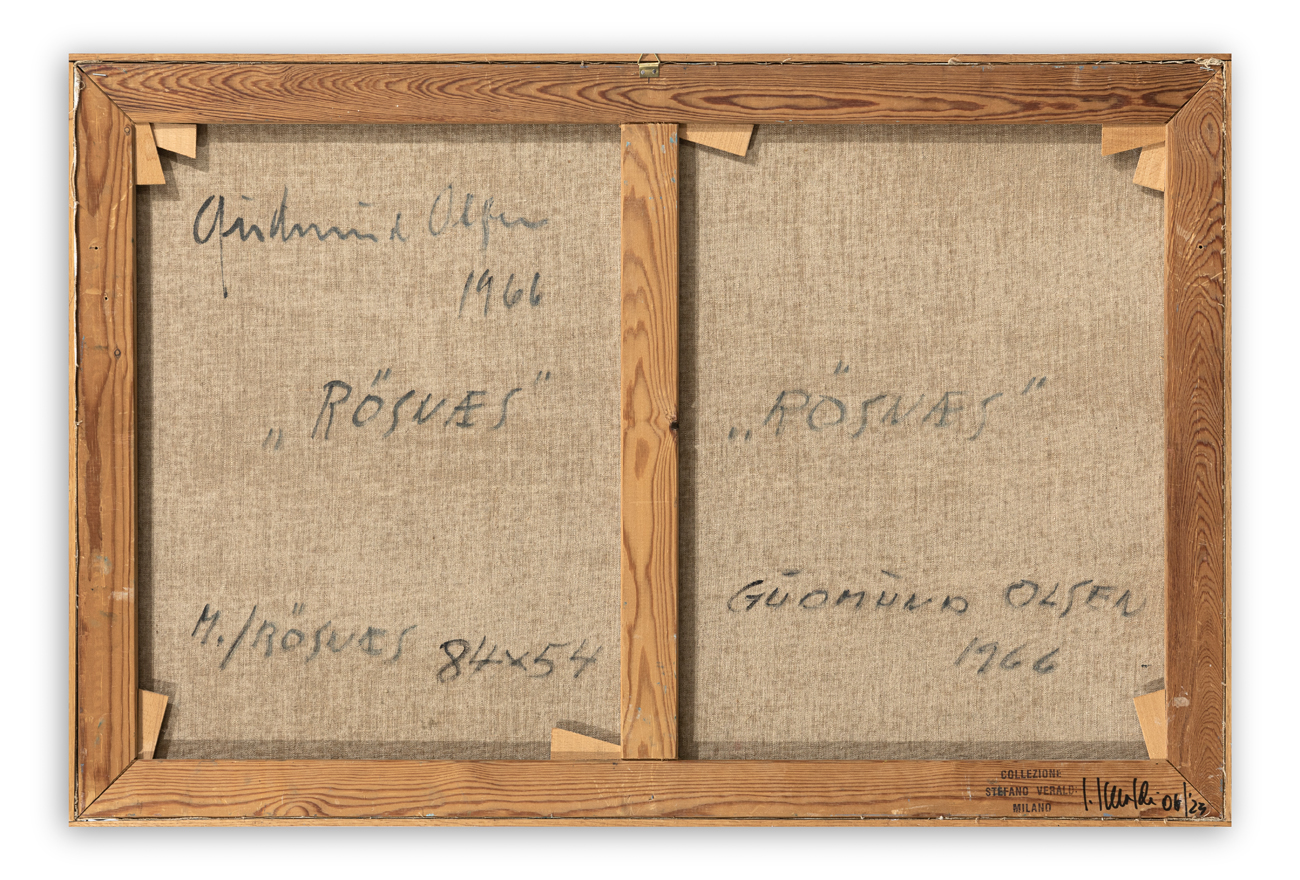 Gudmund Olsen
1966
„RÖSNÆS”
M./RÖSNÆS 84x54
„RÖSNÆS”
GŪDMŪND OLSEN
1966
COLLEZIONE
STEFANO VERALDI
MILANO
06/'23